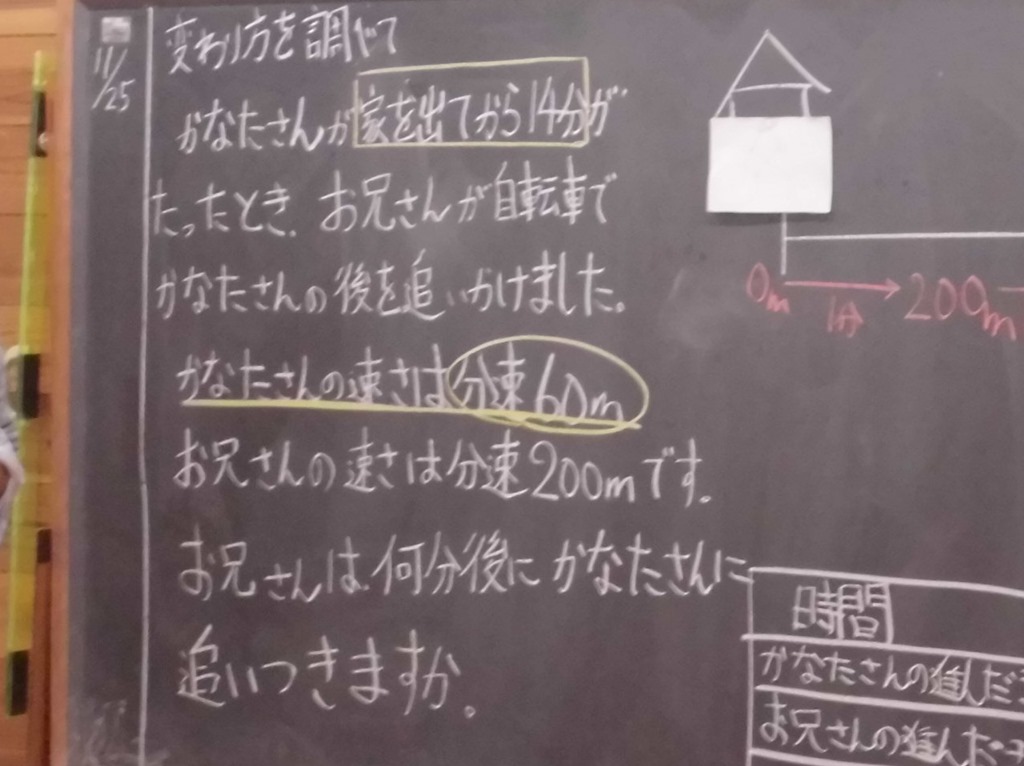 11/25
変わり方を調べて
かなたさんが家を出てから14分が
たったとき、お兄さんが自転車で
かなたさんの後を追いかけました。
かなたさんの速さは分速60m
お兄さんの速さは分速200mです。
お兄さんは何分後にかなたさんに
追いつきますか。
0m 1分 200m
時間
かなたさんの進んだ
お兄さんの進んだ